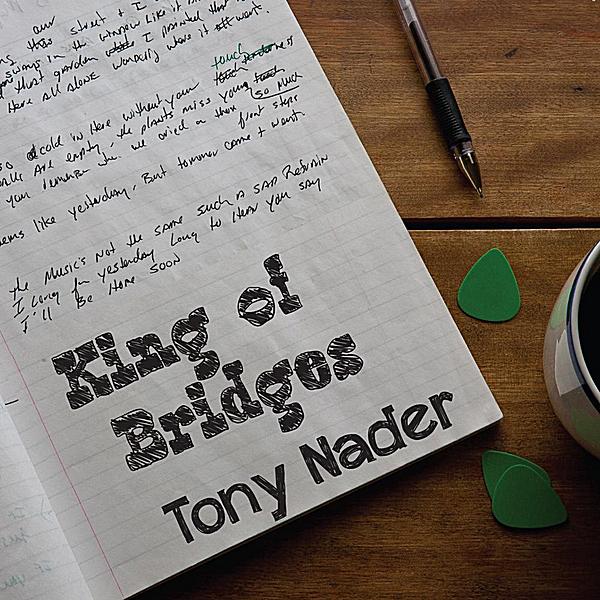 our
this street + I
sways in the window like it
that garden I planted that
Here all alone wondering where it all went.
touch
cold in Here without your touch
walls are empty, the plants miss your touch so much
you remember when we cried on those front steps
seems like yesterday, But tommor came + went.
the Music's Not the same such a sad Refrain
I Long for yesterday Long to Hear you say
I'll Be Home soon
King of
Bridges
Tony Nader